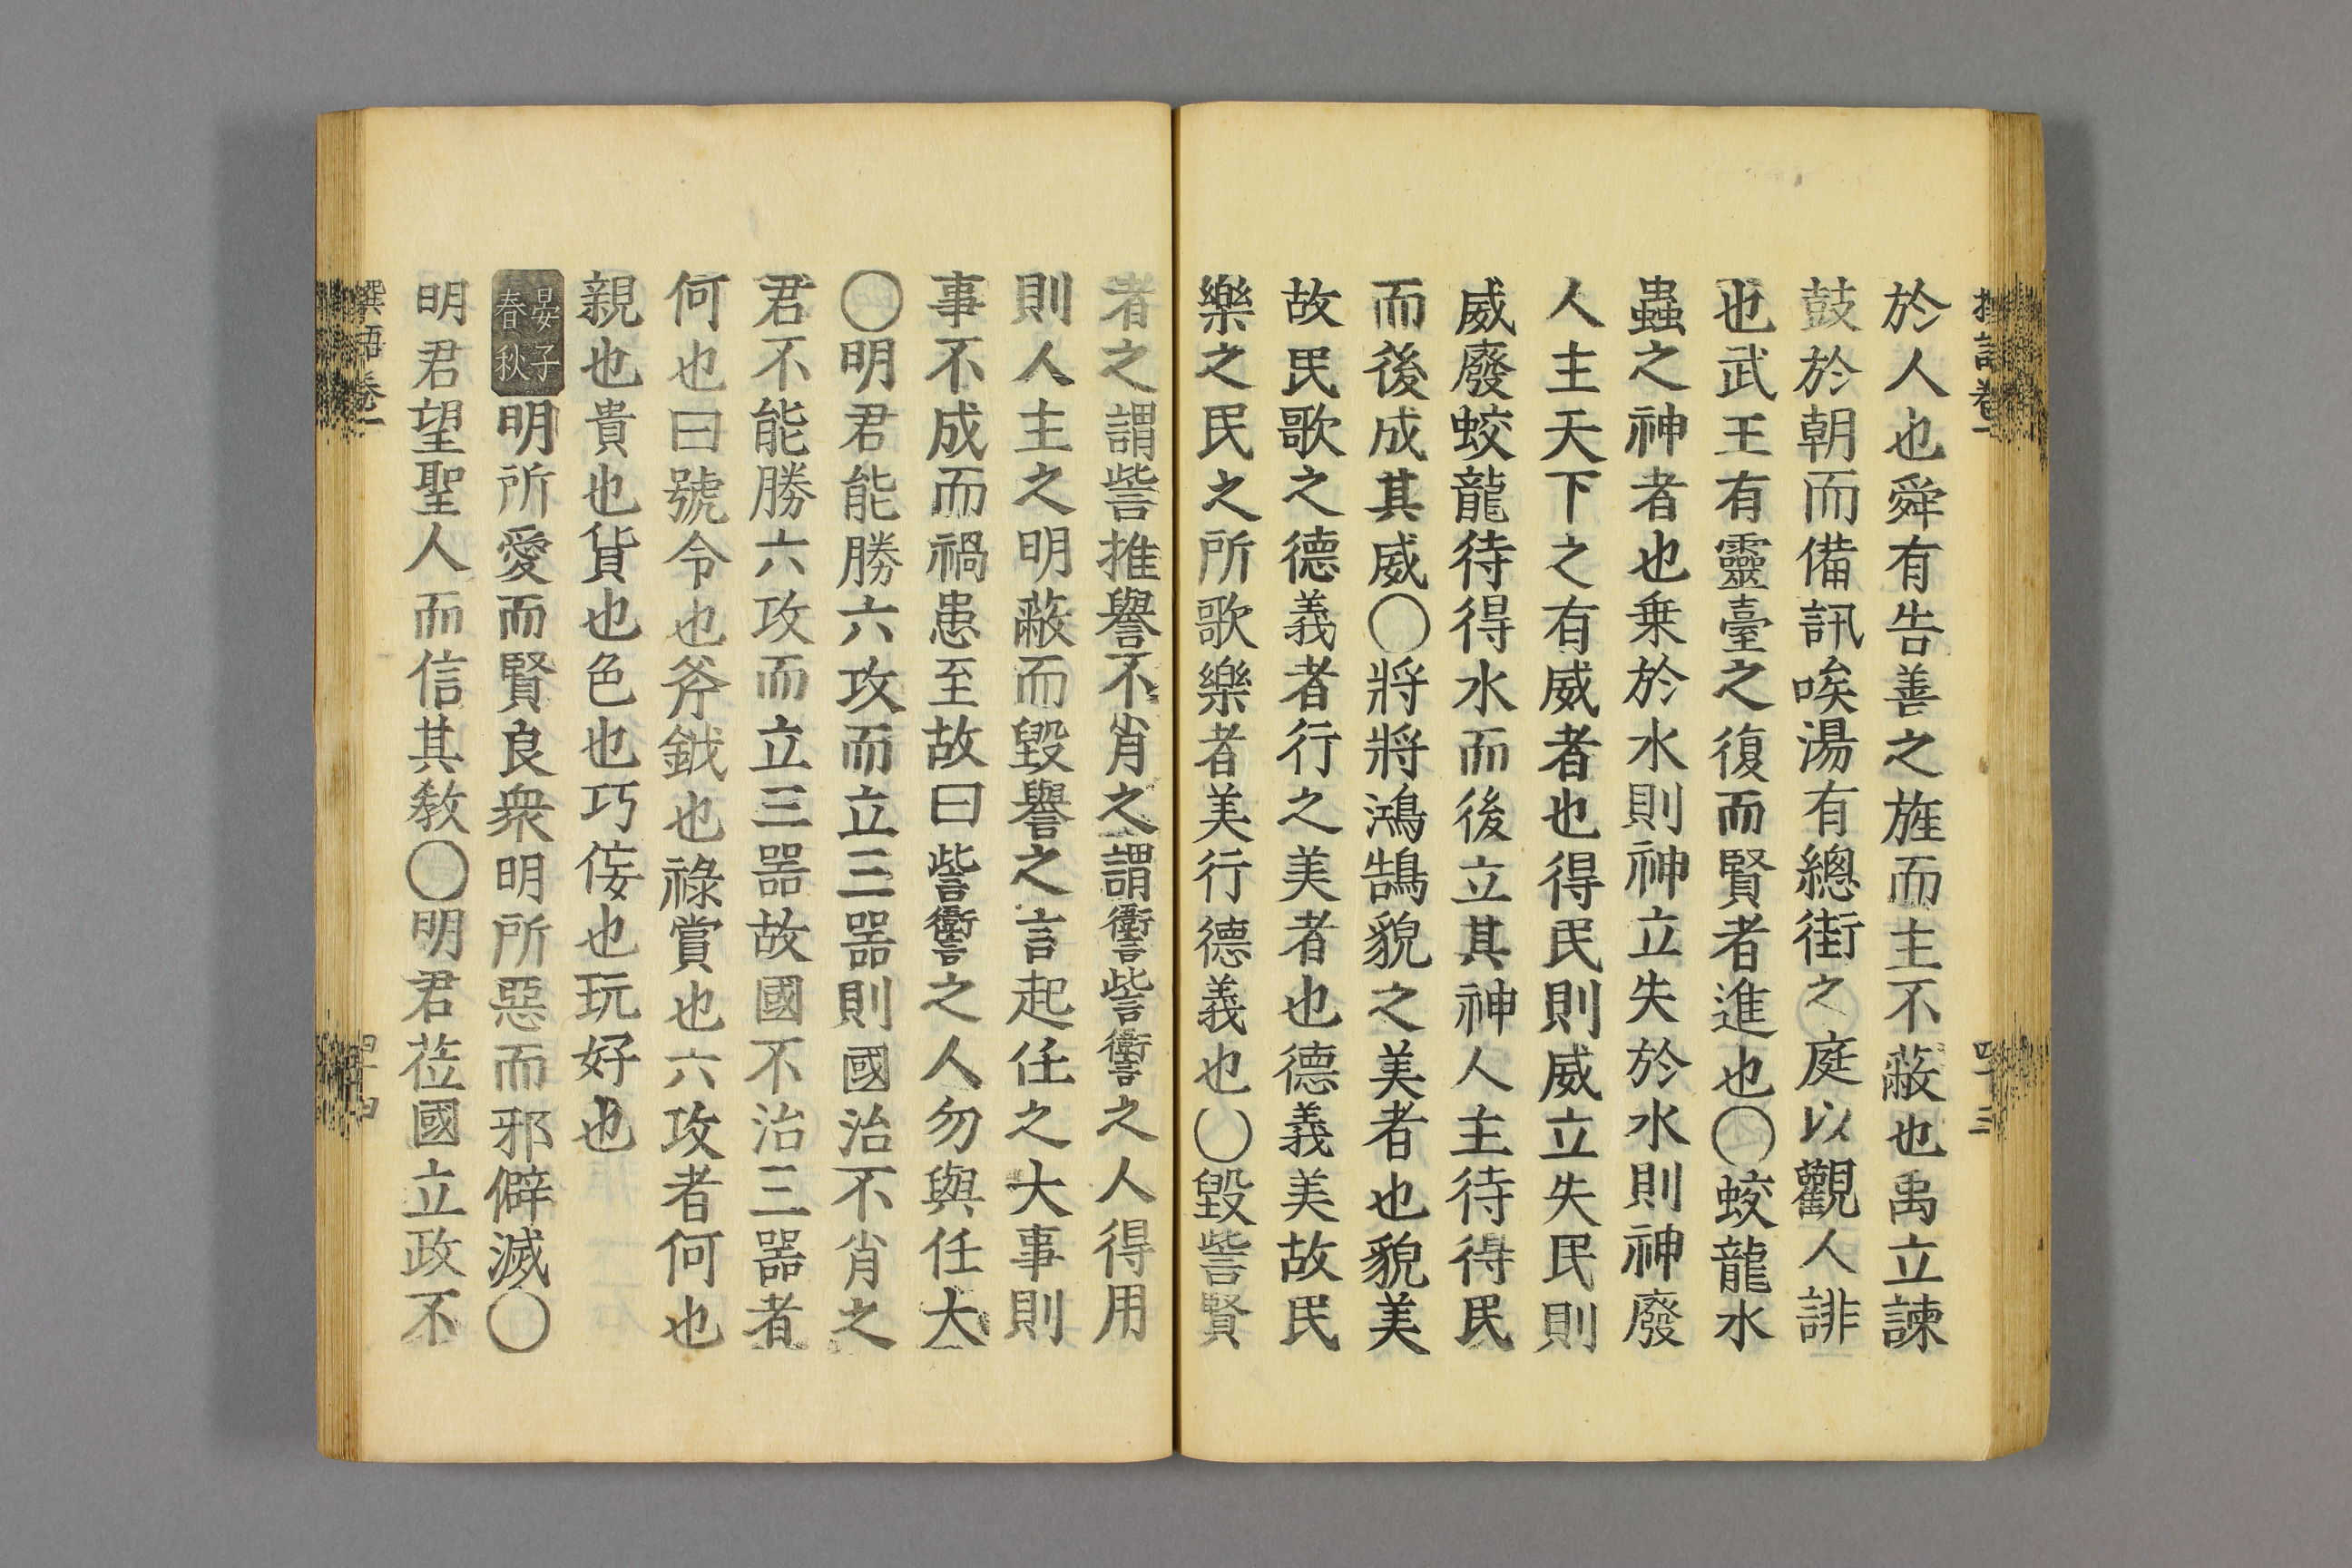 於人也舜有告善之旌而主不蔽也禹立諫
鼓於朝而備訊唉湯有總街之庭以觀人誹
也武王有靈臺之復而賢者進也〇蛟龍水
蟲之神者也乗於水則神立失於水則神廢
人主天下之有威者也得民則威立失民則
威廢蛟龍待得水而後立其神人主待得民
而後成其威〇將將鴻鵠貌之美者也貌美
故民歌之德義者行之美者也德義美故民
樂之民之所歌樂者美行德義也〇毀訾賢
者之謂訾推譽不肖之謂讆訾讆之人得用
則人主之明蔽而毀譽之言起任之大事則
事不成而禍患至故曰訾讆之人勿與任大
〇明君能勝六攻而立三噐則國治不肖之
君不能勝六攻而立三噐故國不治三噐者
何也曰號令也斧鉞也祿賞也六攻者何也
親也貴也貨也色也巧侫也玩好也
晏子春秋明所愛而賢良衆明所惡而邪僻滅〇
明君望聖人而信其敎〇明君莅國立政不
撰語卷一
四十四